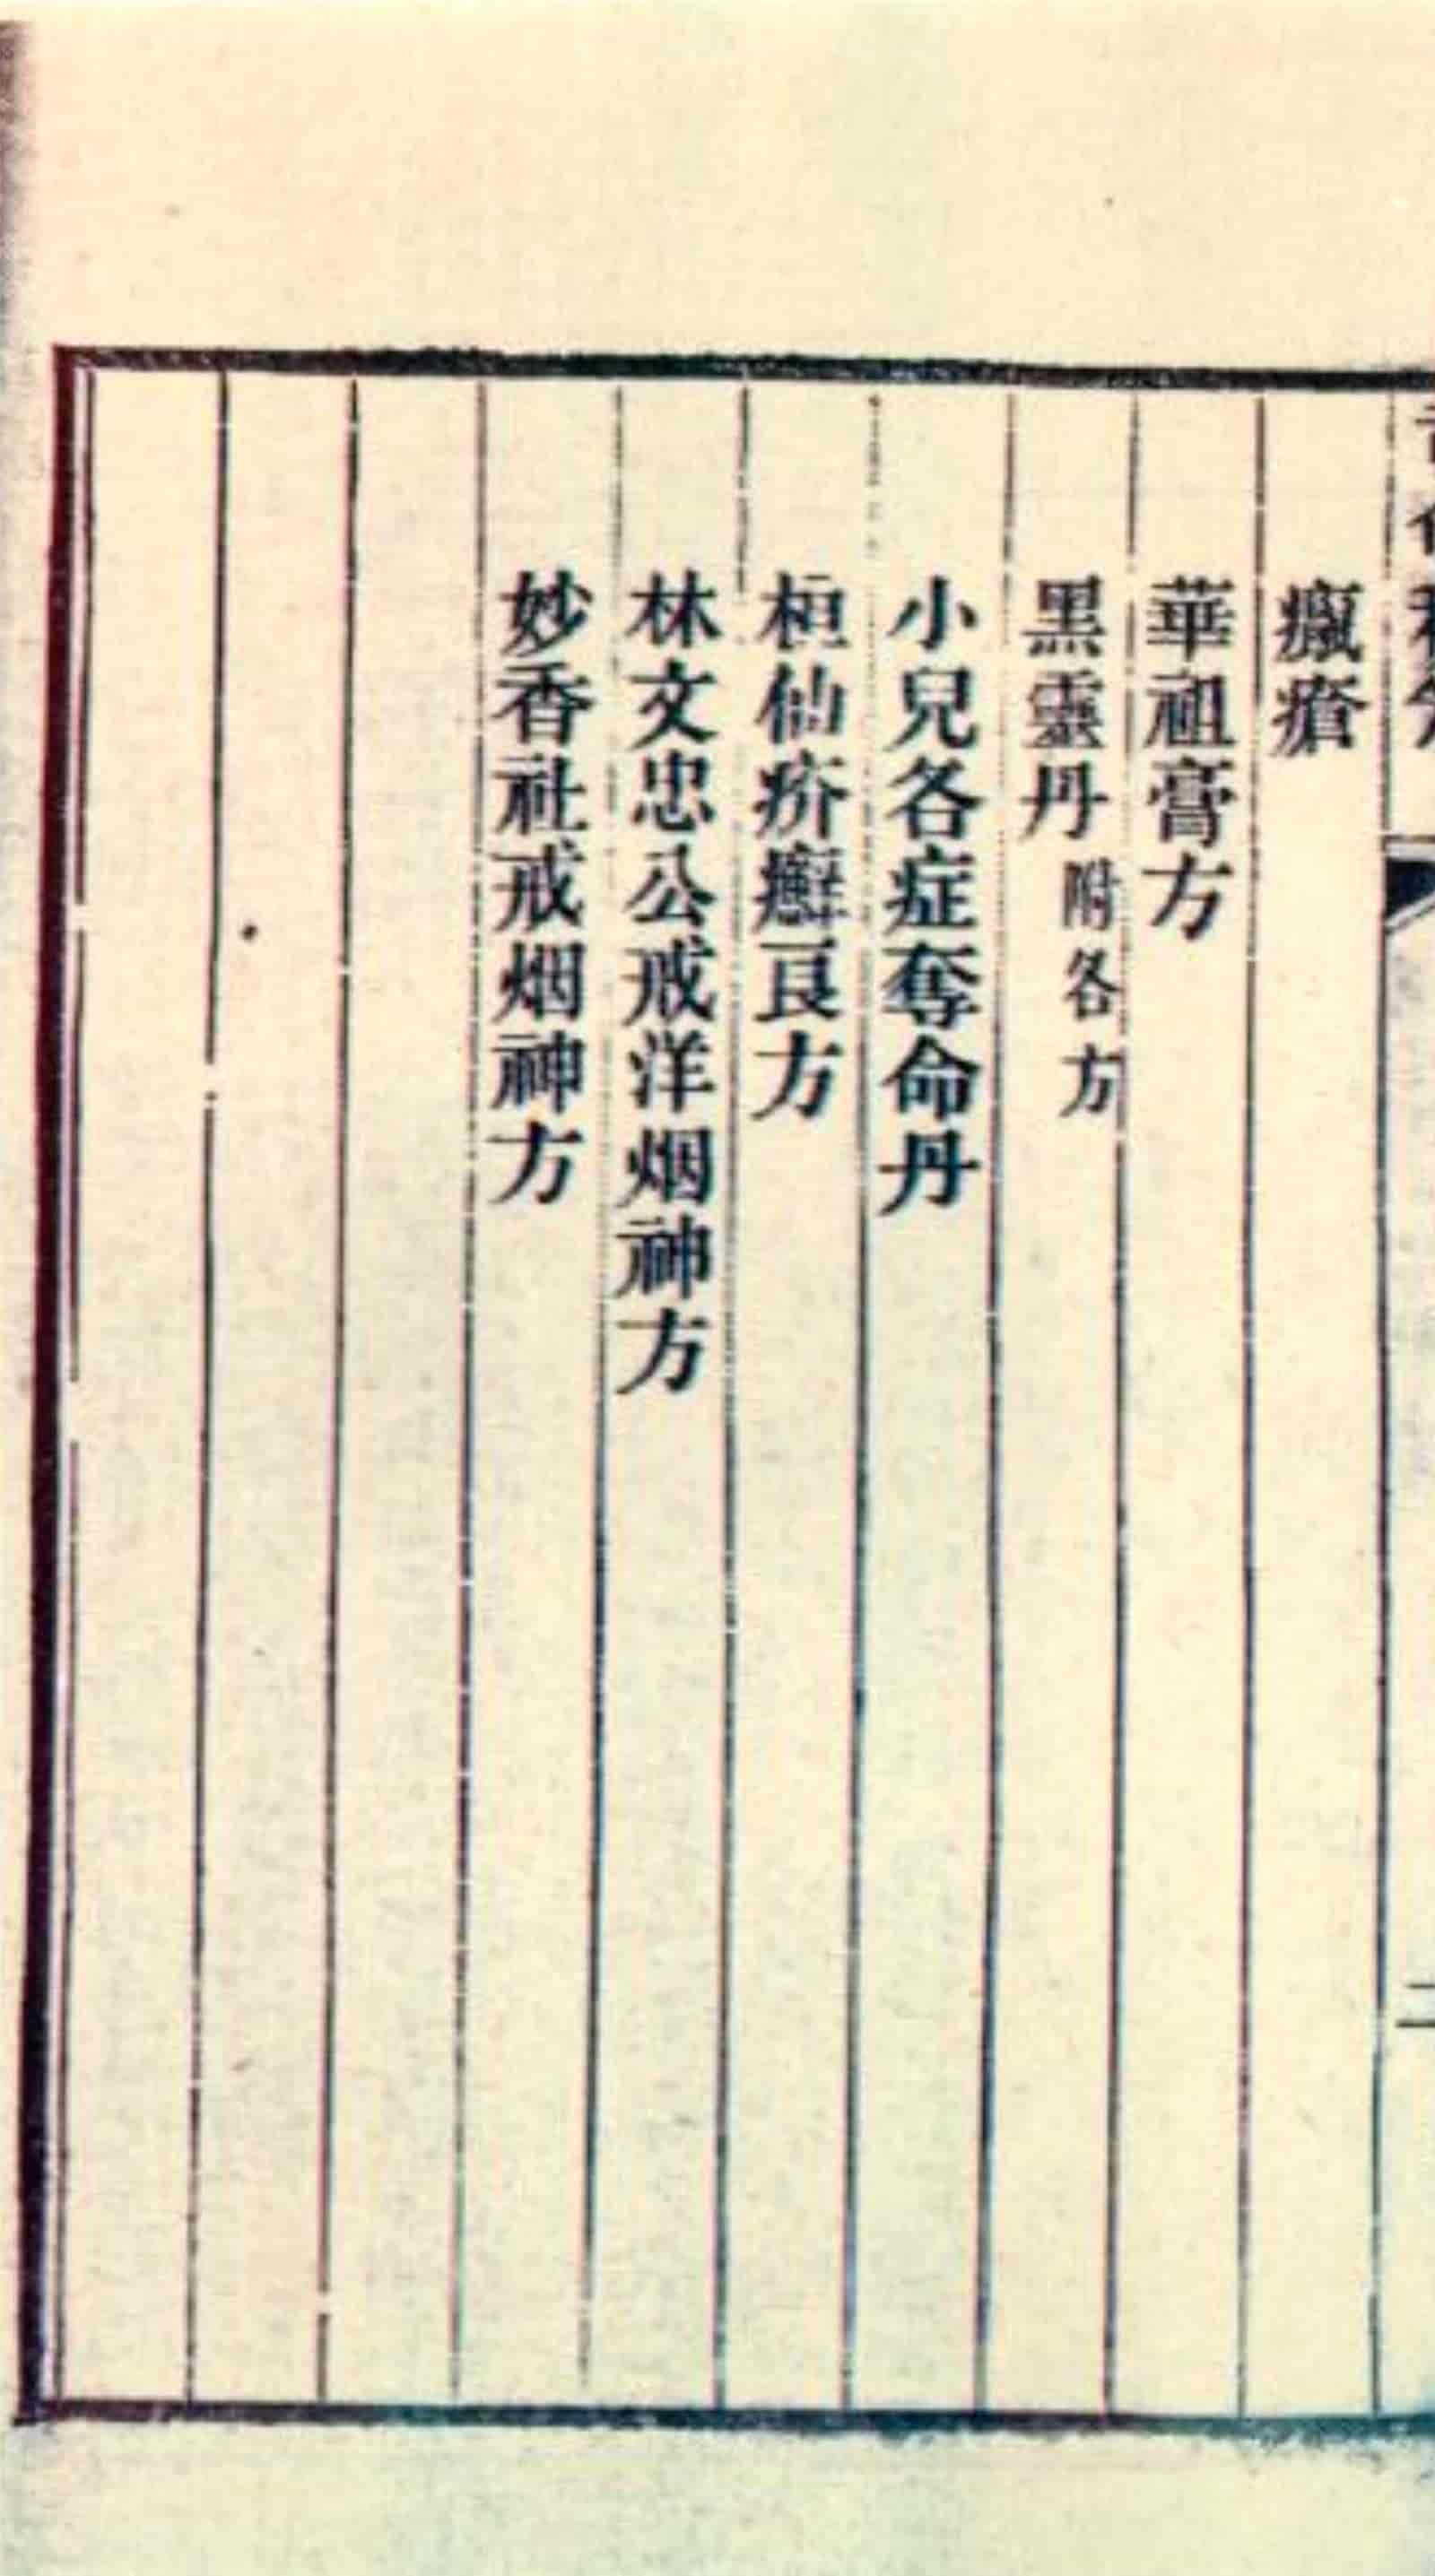 癲瘡
華祖膏方
黑靈丹 附各方
小兒各症奪命丹
桓仙疥癬良方
林文忠公戒洋烟神方
妙香社戒烟神方
二